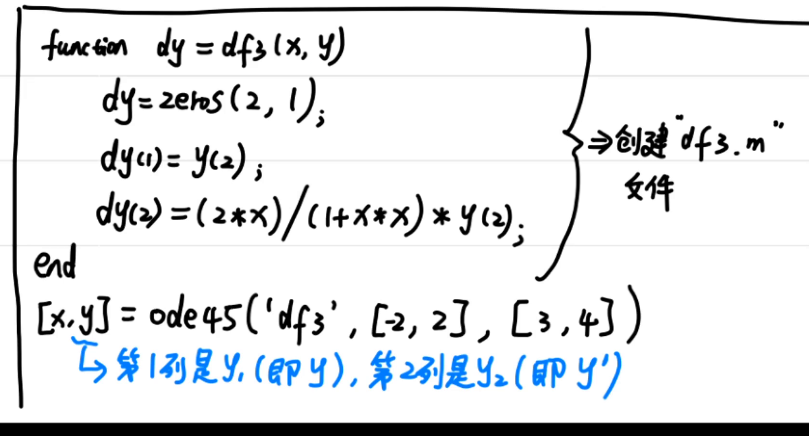 function dy = df3(x, y)
dy=zeros(2, 1);
dy(1)= y(2);
dy(2) = (2*x)/(1+x*x)*y(2);
end
⇒创建"df3.m"
文件
[x,y] = ode45('df3', [-2, 2], [3, 4])
↳第1列是y₁(即y), 第2列是y₂(即y')